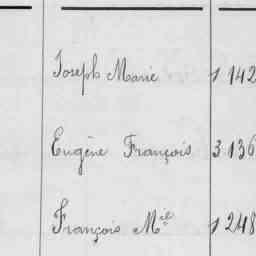 Joseph Marie 1 142
Eugène François 3 136
François Mie 1 248